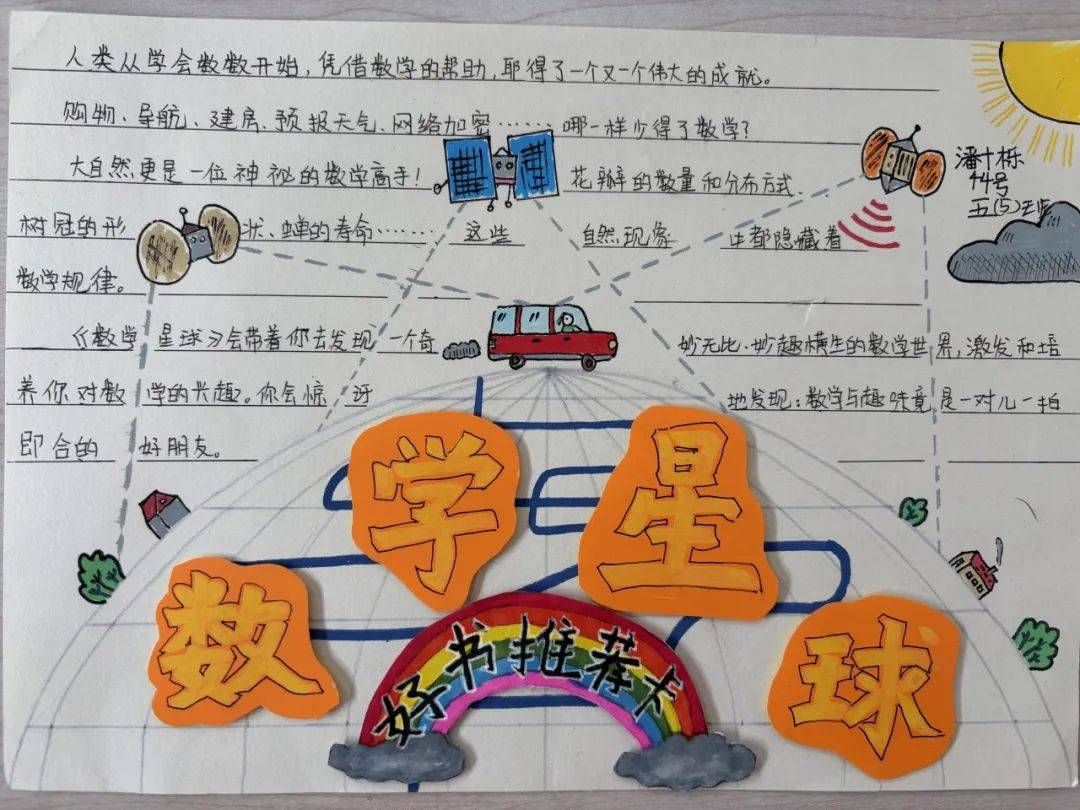 人类从学会数数开始，凭借数学的帮助，取得了一个又一个伟大的成就。
购物、导航、建房、预报天气、网络加密……哪一样少得了数学？
大自然更是一位神秘的数学高手！花瓣的数量和分布方式、
树冠的形状、蝉的寿命……这些自然现象中都隐藏着
数学规律。
《数学星球》会带着你去发现一个奇妙无比、妙趣横生的数学世界，激发和培
养你对数学的兴趣。你会惊讶地发现：数学与趣味竟是一对儿一拍
即合的好朋友。
潘十栎
44号
五(5)
数学星球
好书推荐卡